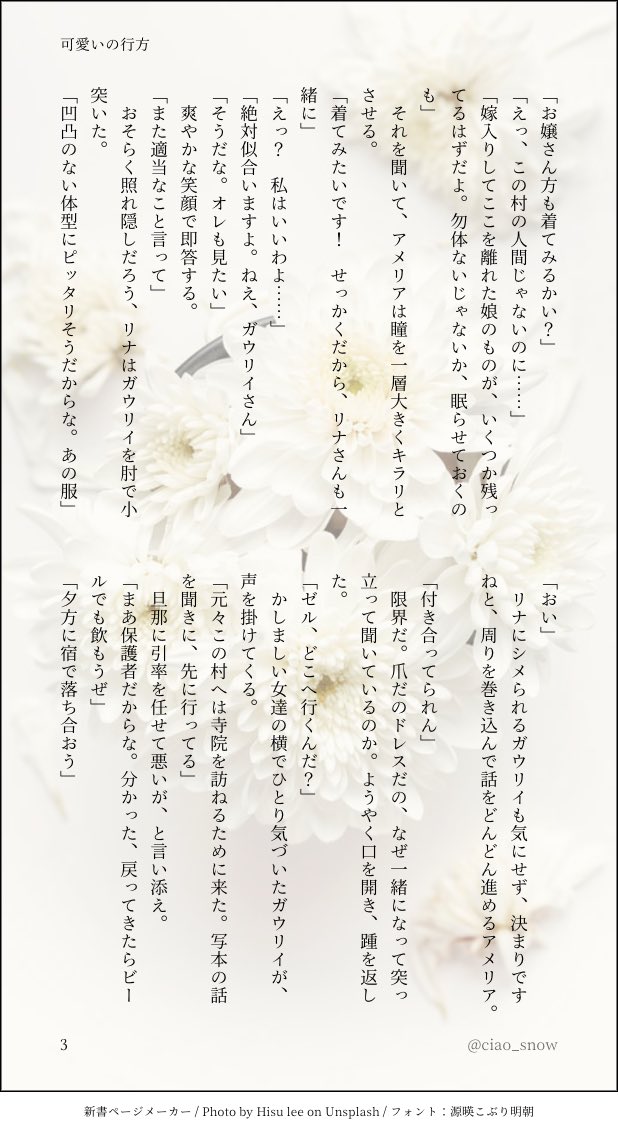 可愛いの行方
「お嬢さん方も着てみるかい？」
「えっ、この村の人間じゃないのに……」
「嫁入りしてここを離れた娘のものが、いくつか残っ
てるはずだよ。勿体ないじゃないか、眠らせておくの
も」
　それを聞いて、アメリアは瞳を一層大きくキラリと
させる。
「着てみたいです！　せっかくだから、リナさんも一
緒に」
「えっ？　私はいいわよ……」
「絶対似合いますよ。ねえ、ガウリイさん」
「そうだな。オレも見たい」
　爽やかな笑顔で即答する。
「また適当なこと言って」
　おそらく照れ隠しだろう、リナはガウリイを肘で小
突いた。
「凹凸のない体型にピッタリそうだからな。あの服」
「おい」
　リナにシメられるガウリイも気にせず、決まりです
ねと、周りを巻き込んで話をどんどん進めるアメリア。
「付き合ってられん」
　限界だ。爪だのドレスだの、なぜ一緒になって突っ
立って聞いているのか。ようやく口を開き、踵を返し
た。
「ゼル、どこへ行くんだ？」
　かしましい女達の横でひとり気づいたガウリイが、
声を掛けてくる。
「元々この村へは寺院を訪ねるために来た。写本の話
を聞きに、先に行ってる」
　旦那に引率を任せて悪いが、と言い添え。
「まあ保護者だからな。分かった、戻ってきたらビー
ルでも飲もうぜ」
「夕方に宿で落ち合おう」
3
@ciao_snow
新書ページメーカー / Photo by Hisu lee on Unsplash / フォント：源暎こぶり明朝